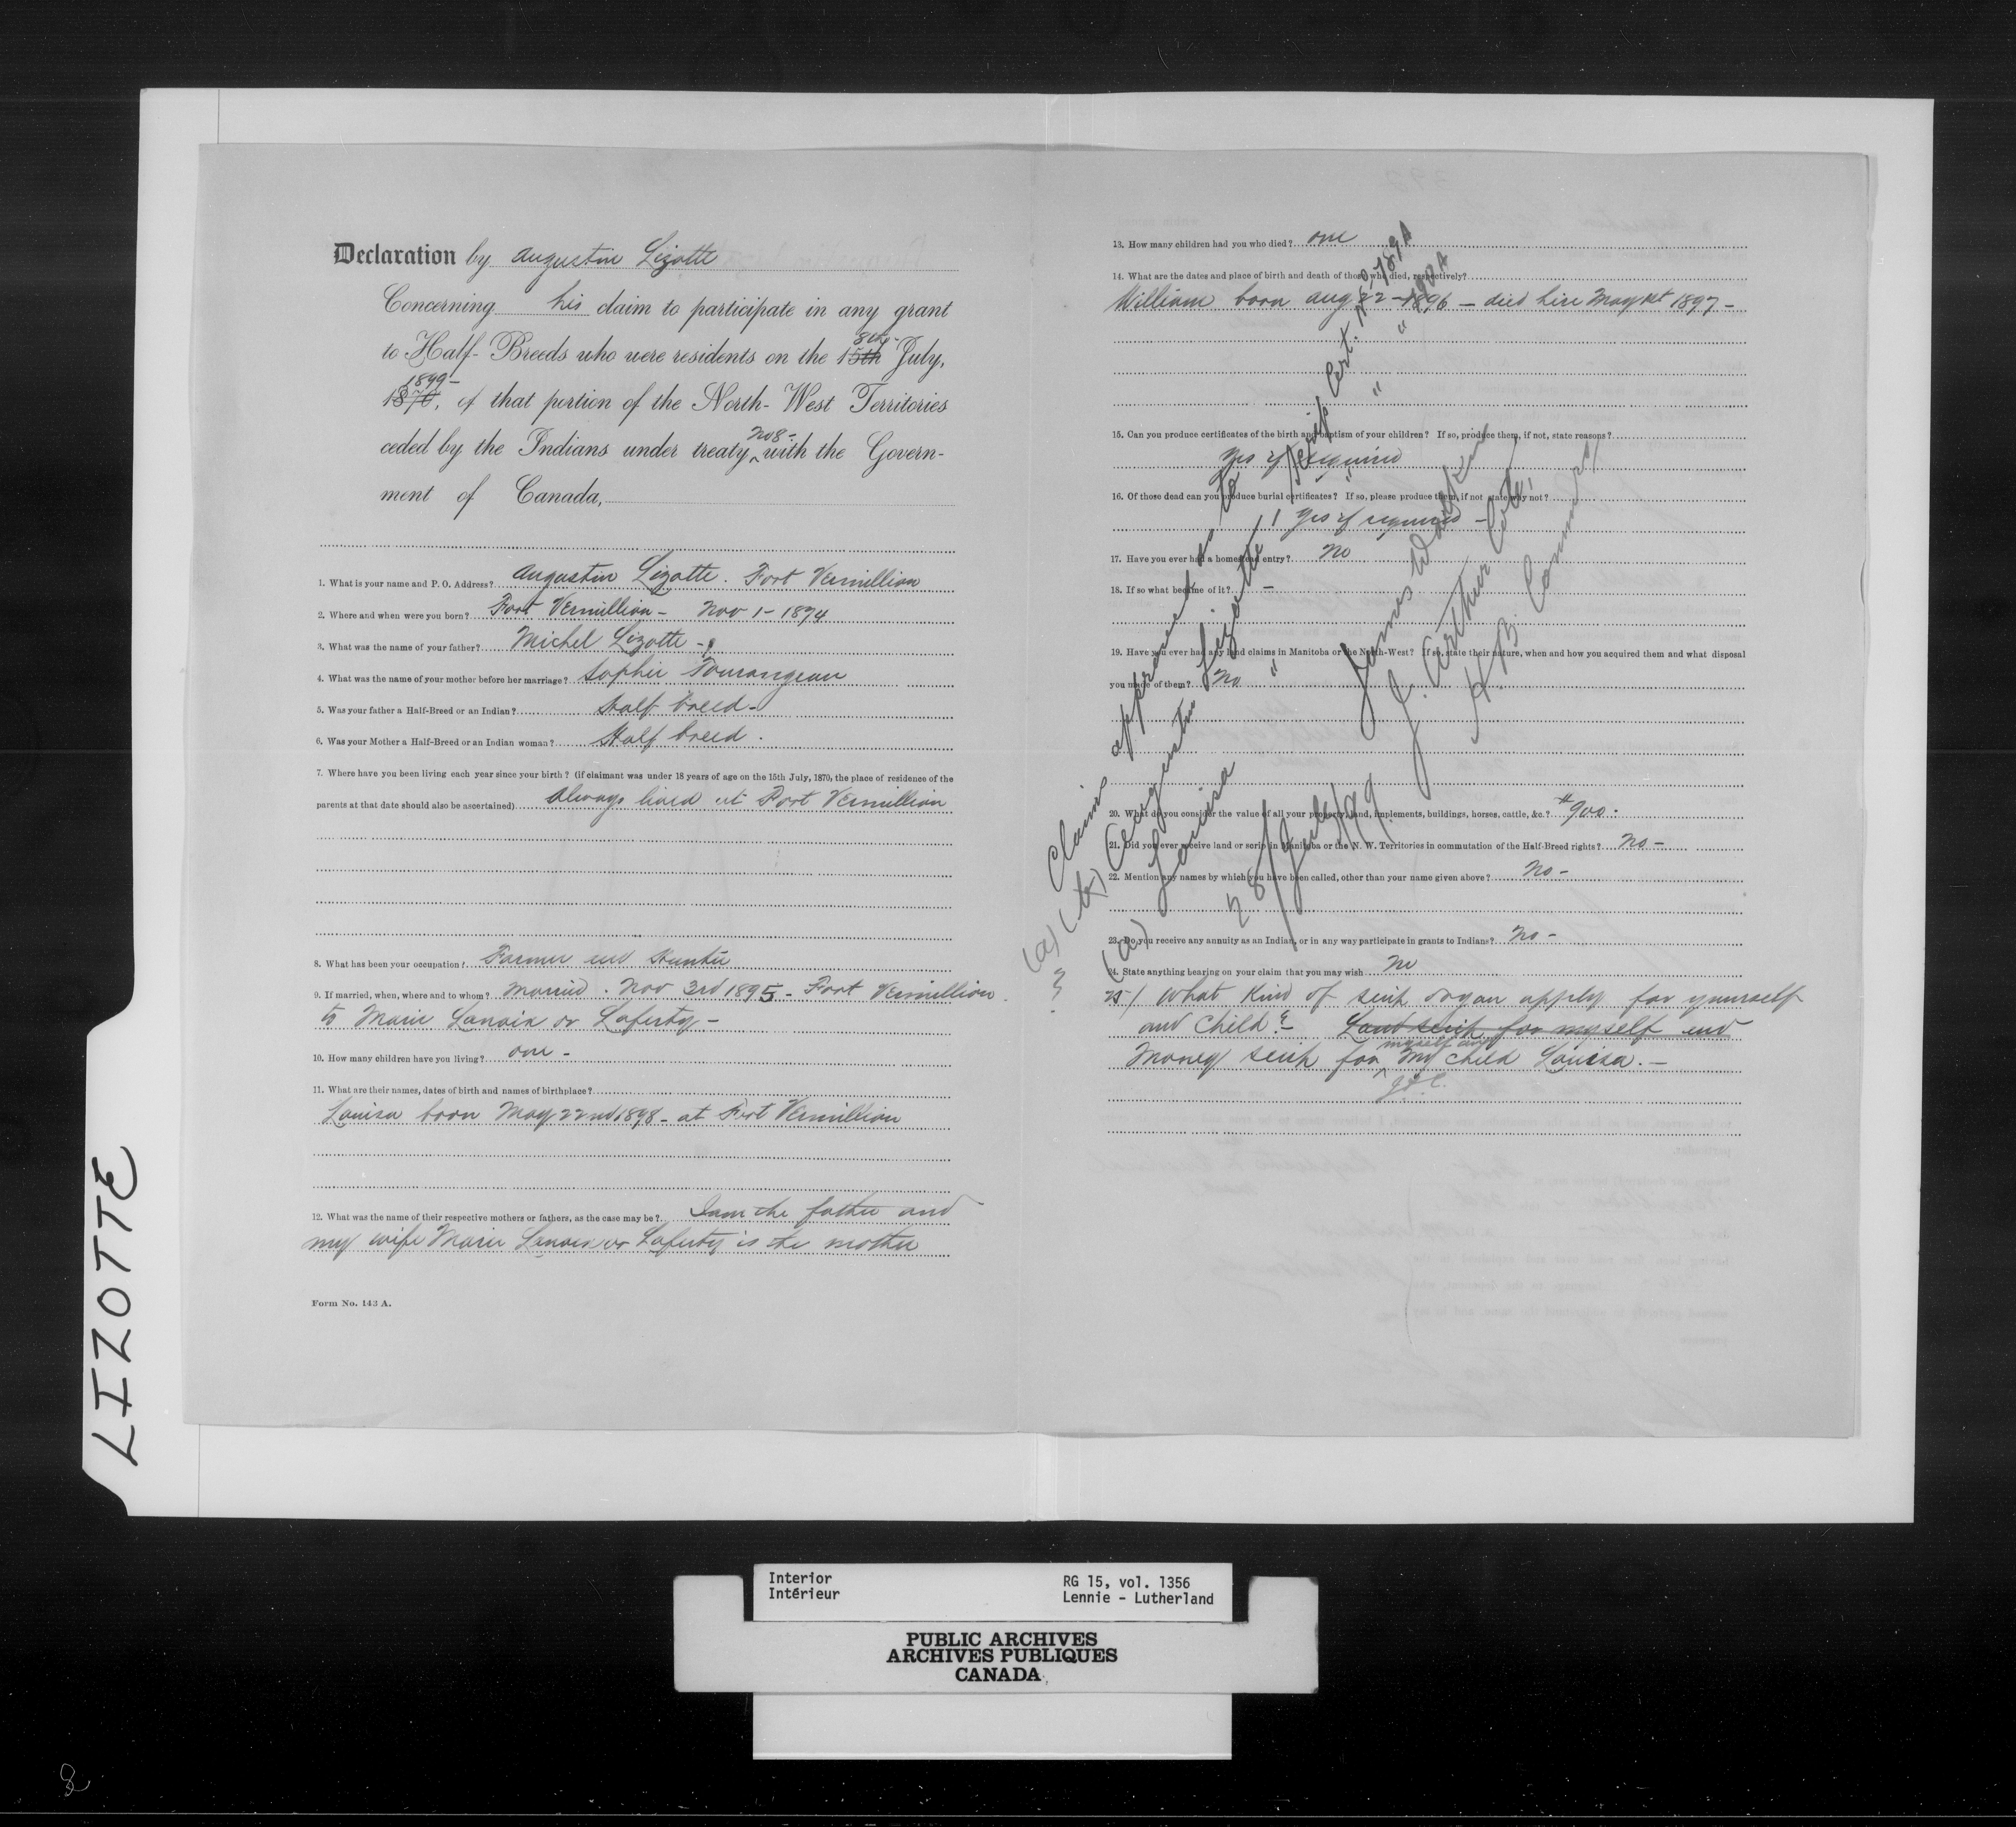 Declaration by Augustin Lizotte
Concerning his claim to participate in any grant
to Half-Breeds who were residents on the 15th 8th - July,
1870, 1899 - of that portion of the North-West Territories
ceded by the Indians under treaty No 8 - with the Govern-
ment of Canada,
1. What is your name and P. O. Address? Augustin Lizotte. Fort Vermillion
2. Where and when were you born? Fort Vermillion - Nov 1 - 1874
3. What was the name of your father? Michel Lizotte -
4. What was the name of your mother before her marriage? Sophie Tourangeau
5. Was your father a Half-Breed or an Indian? Half breed -
6. Was your Mother a Half-Breed or an Indian woman? Half breed .
7. Where have you been living each year since your birth? (if claimant was under 18 years of age on the 15th July, 1870, the place of residence of the
parents at that date should also be ascertained) Always lived at Fort Vermillion
8. What has been your occupation? Farmer and Hunter
9. If married, when, where and to whom? Married . Nov 3rd 1895 - Fort Vermillion .
to Marie Lanoix or Laferty -
10. How many children have you living? one -
11. What are their names, dates of birth and names of birthplace?
Louisa born May 22nd 1898 - at Fort Vermillion
12. What was the name of their respective mothers or fathers, as the case may be? I am the father and
my wife Marie Lanoix or Laferty is the mother
Form No. 143 A.
13. How many children had you who died? one
14. What are the dates and place of birth and death of those who died, respectively?
William born Aug 22 - 1896 - died here May 1st 1897 -
15. Can you produce certificates of the birth and baptism of your children? If so, produce them, if not, state reasons?
Yes if required
16. Of those dead can you produce burial certificates? If so, please produce them, if not state why not?
Yes if required -
17. Have you ever had a homestead entry? No
18. If so what became of it? -
19. Have you ever had any land claims in Manitoba or the North-West? If so, state their nature, when and how you acquired them and what disposal
you made of them? No
20. What do you consider the value of all your property, land, implements, buildings, horses, cattle, &c.? $900.
21. Did you ever receive land or scrip in Manitoba or the N. W. Territories in commutation of the Half-Breed rights? No -
22. Mention any names by which you have been called, other than your name given above? No -
23. Do you receive any annuity as an Indian, or in any way participate in grants to Indians? No -
24. State anything bearing on your claim that you may wish No
25/ What kind of scrip do you apply for yourself
and child? - Land scrip for myself and
Money scrip for myself and My child Louisa. -
J.A.C.
Claims approved as to
(a) Augustin Lizotte / Scrip Cert. No 789A
(a) Louisa " " " " 790A
28/July/99
James Walker
J. Arthur Coté,
H.B. Commrs/
LIZOTTE
Interior RG 15, vol. 1356
Intérieur Lennie - Lutherland
PUBLIC ARCHIVES
ARCHIVES PUBLIQUES
CANADA